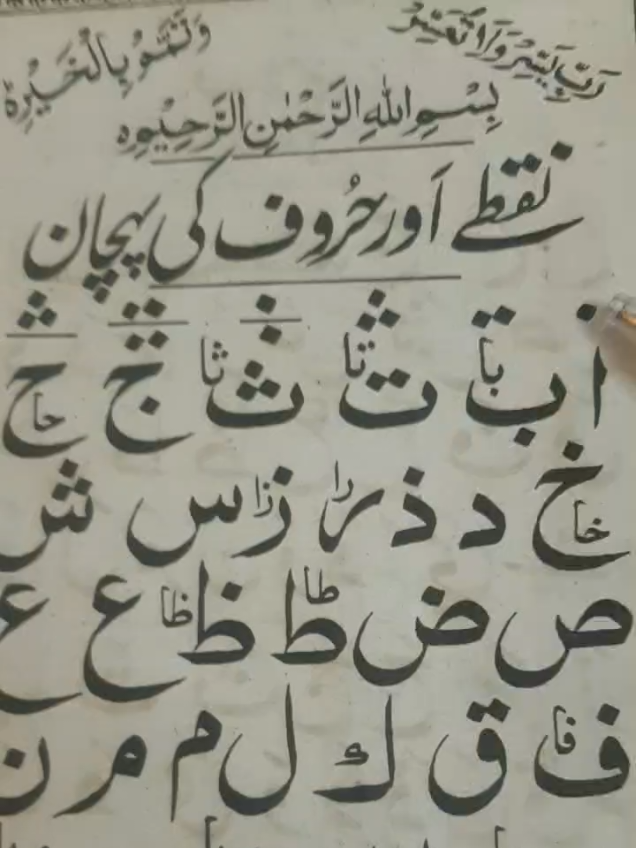 رَبِّ يَسِّرْ وَلَا تُعَسِّرْ
وَتَمِّمْ بِالْخَيْرِ
بِسْمِ اللهِ الرَّحْمٰنِ الرَّحِيْمِ
نقطے اَور حُروف کی پہچان
ا ب با ت تا ث ثا ج ح حا
خ خا د ذ ر را ز زا س ش
ص ض ط طا ظ ظا ع غ
ف فا ق ك ل م م ن